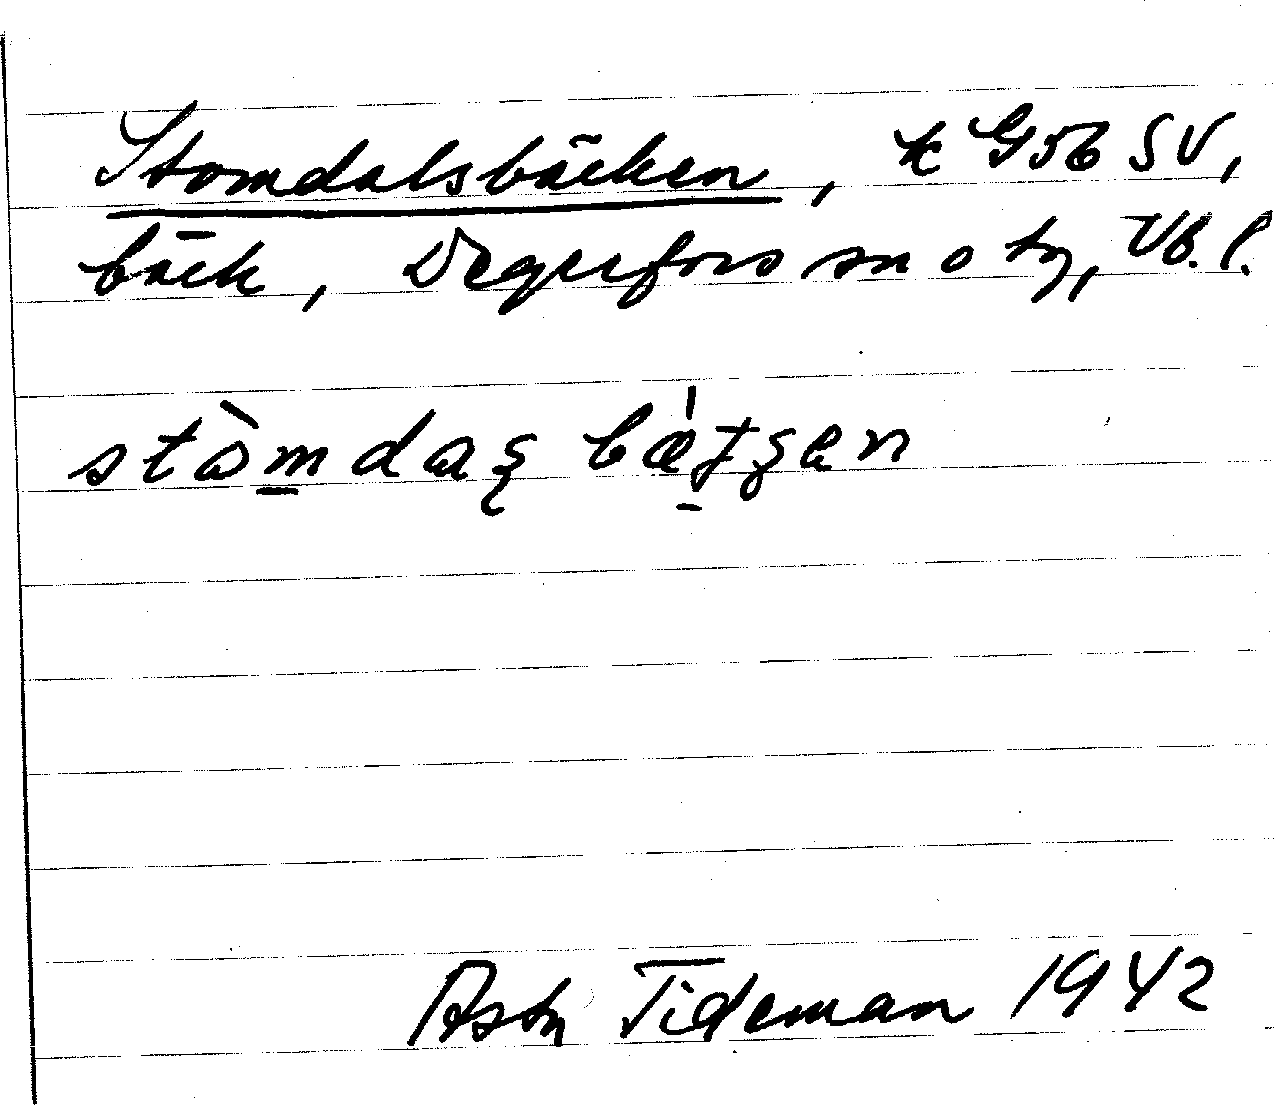 Stomdalsbäcken, k G56 SV,
bäck, Degerfors sn o tg, Vb. l.
stòmdaʂ bæ̀ʈʂen
Astr Tideman 1942